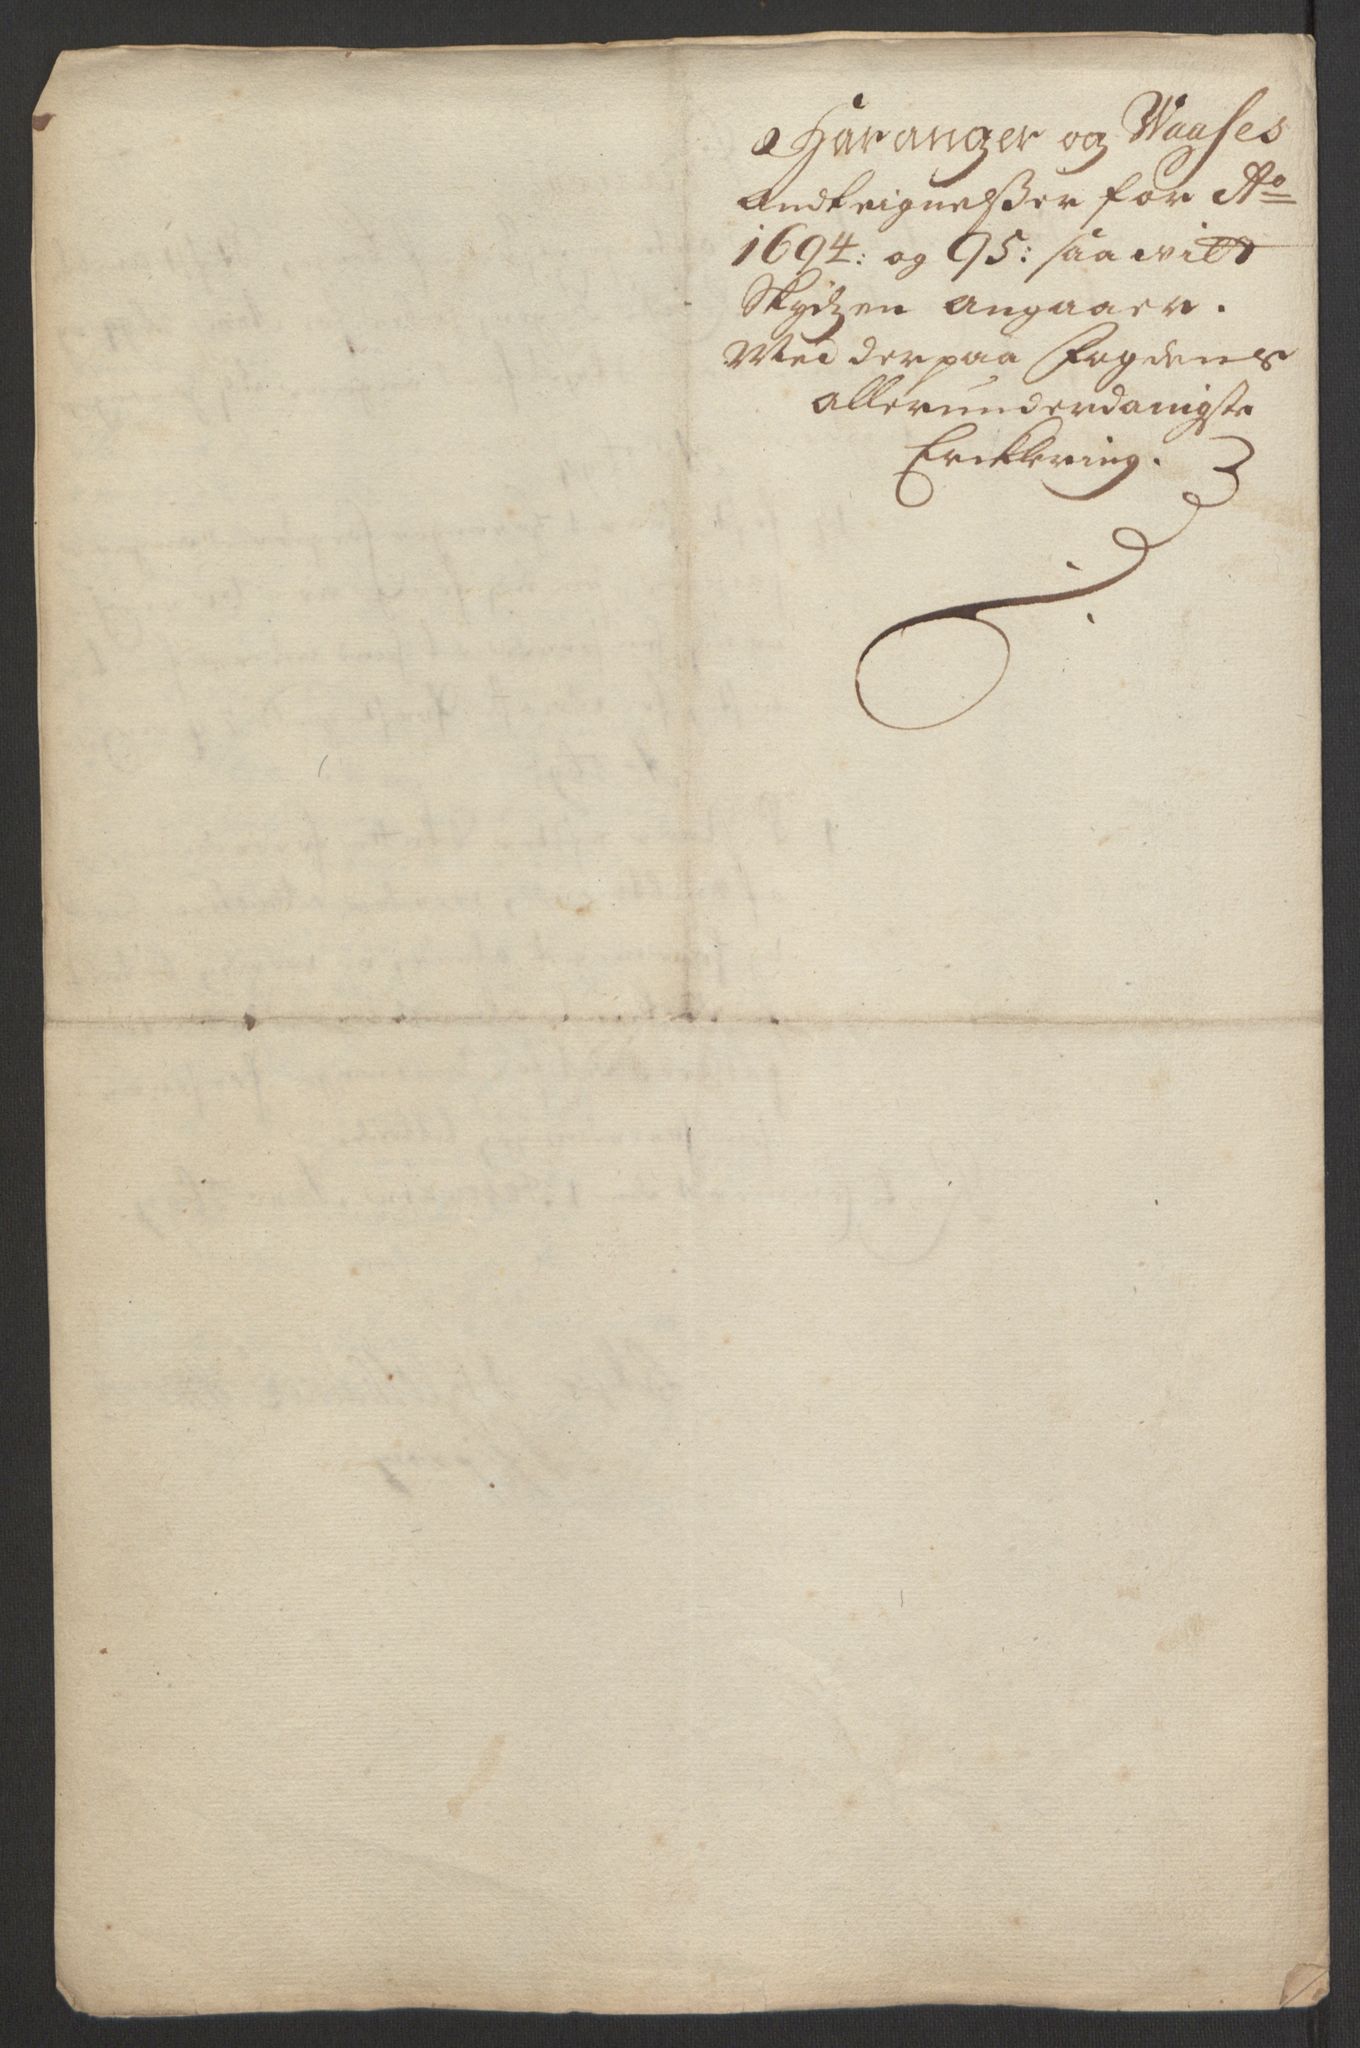 Haranger og Waases
Andteignelßer for Ao
1694: og 95: saa vitt
Skydzen angaaer.
Med derpaa Fogdens
allerunderdanigste
Ercklering.